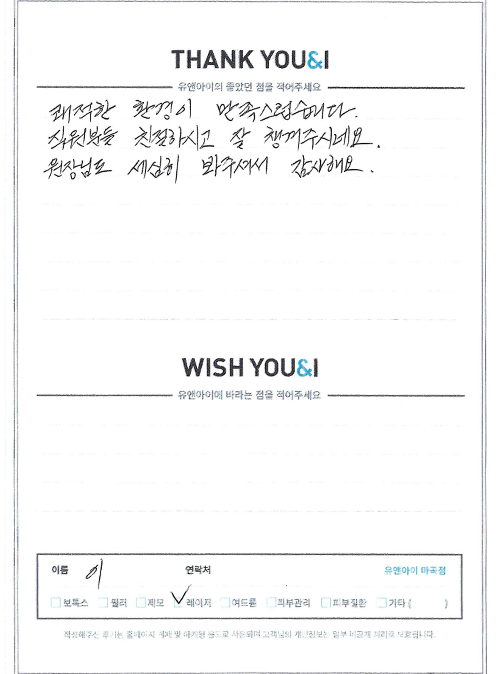 THANK YOU&I
유앤아이의 좋았던 점을 적어주세요
쾌적한 환경이 만족스럽습니다.
직원분들 친절하시고 잘 챙겨주시네요.
원장님도 세심히 봐주셔서 감사해요.
WISH YOU&I
유앤아이에 바라는 점을 적어주세요
이름 이 연락처 유앤아이 마곡점
보톡스 필러 제모 레이저 여드름 피부관리 피부질환 기타 ( )
작성해주신 후기는 홈페이지 게재 및 마케팅 용도로 사용되며 고객님의 개인정보는 일부 비공개 처리로 보호됩니다.